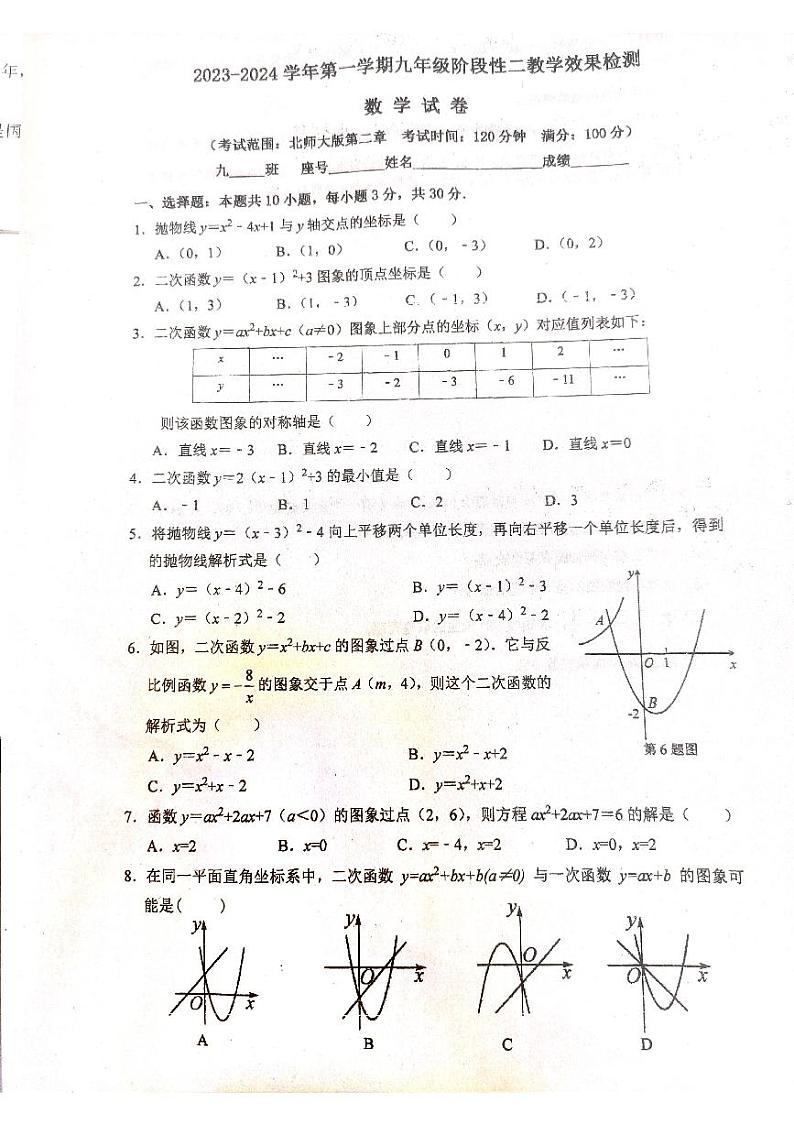 年,
2023-2024学年第一学期九年级阶段性二教学效果检测
数 学 试 卷
（考试范围：北师大版第二章 考试时间：120分钟 满分：100分）
九____班 座号______姓名____________成绩______
一、选择题：本题共10小题，每小题3分，共30分.
1．抛物线y=x²﹣4x+1与y轴交点的坐标是（ ）
A.（0，1） B.（1，0） C.（0，﹣3） D.（0，2）
2．二次函数y=（x﹣1）²+3图象的顶点坐标是（ ）
A.（1，3） B.（1，﹣3） C.（﹣1，3） D.（﹣1，﹣3）
3．二次函数y=ax²+bx+c（a≠0）图象上部分点的坐标（x，y）对应值列表如下：
x … ﹣2 ﹣1 0 1 2 …
y … ﹣3 ﹣2 ﹣3 ﹣6 ﹣11 …
则该函数图象的对称轴是（ ）
A．直线x=﹣3 B．直线x=﹣2 C．直线x=﹣1 D．直线x=0
4．二次函数y=2（x﹣1）²+3的最小值是（ ）
A．﹣1 B．1 C．2 D．3
5．将抛物线y=（x﹣3）²﹣4向上平移两个单位长度，再向右平移一个单位长度后，得到
的抛物线解析式是（ ）
A．y=（x﹣4）²﹣6 B．y=（x﹣1）²﹣3
C．y=（x﹣2）²﹣2 D．y=（x﹣4）²﹣2
6．如图，二次函数y=x²+bx+c的图象过点B（0，﹣2）．它与反
比例函数y=﹣8/x的图象交于点A（m，4），则这个二次函数的
解析式为（ ）
A．y=x²﹣x﹣2 B．y=x²﹣x+2
C．y=x²+x﹣2 D．y=x²+x+2
y
A
O 1 x
-2 B
第6题图
7．函数y=ax²+2ax+7（a＜0）的图象过点（2，6），则方程ax²+2ax+7=6的解是（ ）
A．x=2 B．x=0 C．x=﹣4，x=2 D．x=0，x=2
8．在同一平面直角坐标系中，二次函数 y=ax²+bx+b(a≠0) 与一次函数 y=ax+b 的图象可
能是( )
y y y y
O x O x O x O x
A B C D